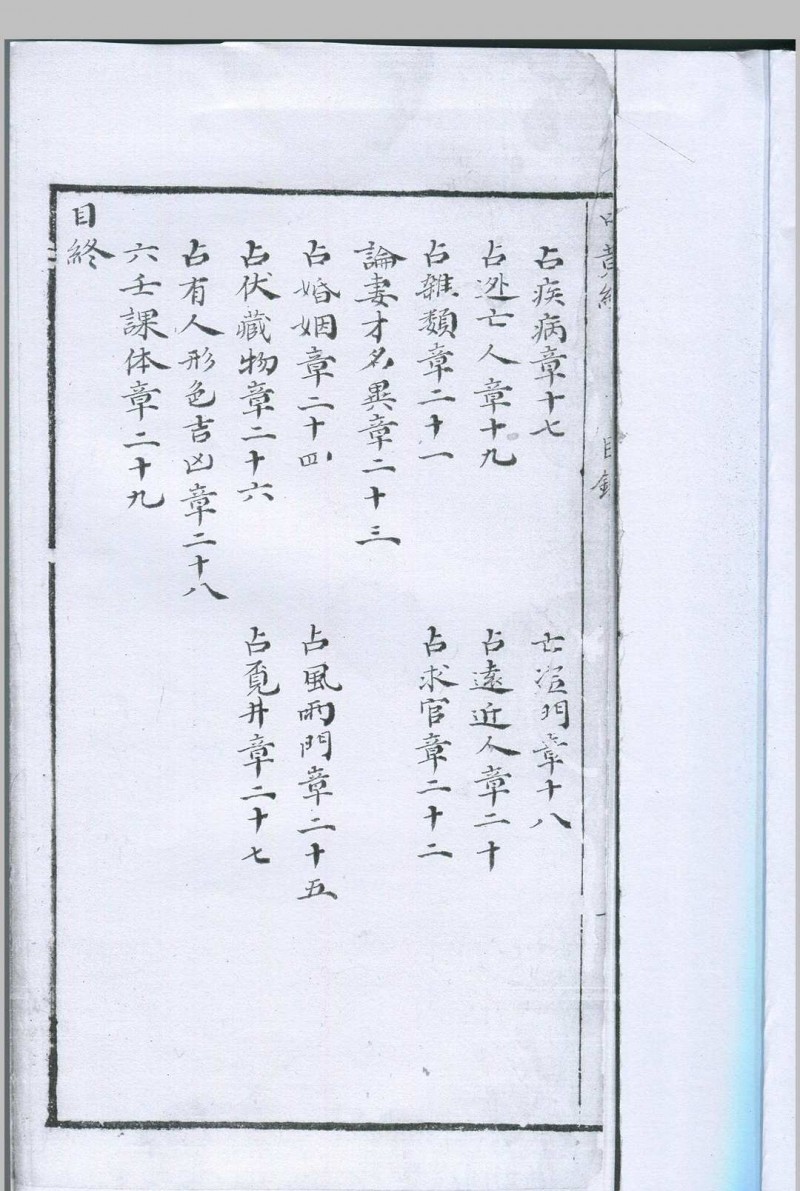 占疾病章十七
亡盜門章十八
占逃亡人章十九
占遠近人章二十
占雜類章二十一
占求官章二十二
論妻才名異章二十三
占婚姻章二十四
占風雨門章二十五
占伏藏物章二十六
占覓井章二十七
占有人形色吉凶章二十八
六壬課体章二十九
目終
目錄